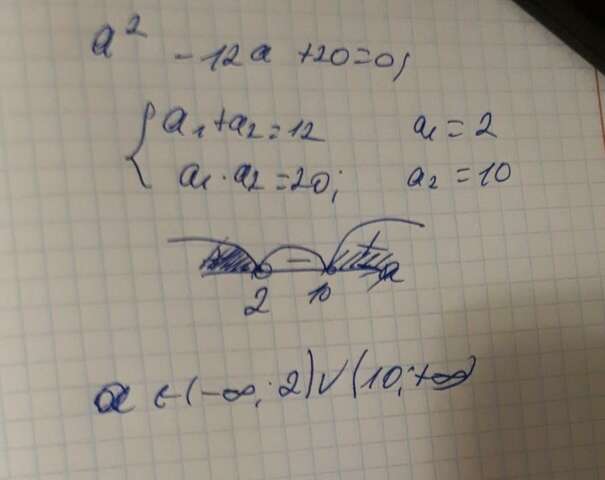 a² - 12a + 20 = 0;
{ a₁ + a₂ = 12 a₁ = 2
a₁ · a₂ = 20; a₂ = 10
+ - + a
2 10
a ∈ (-∞; 2) ∪ (10; +∞)